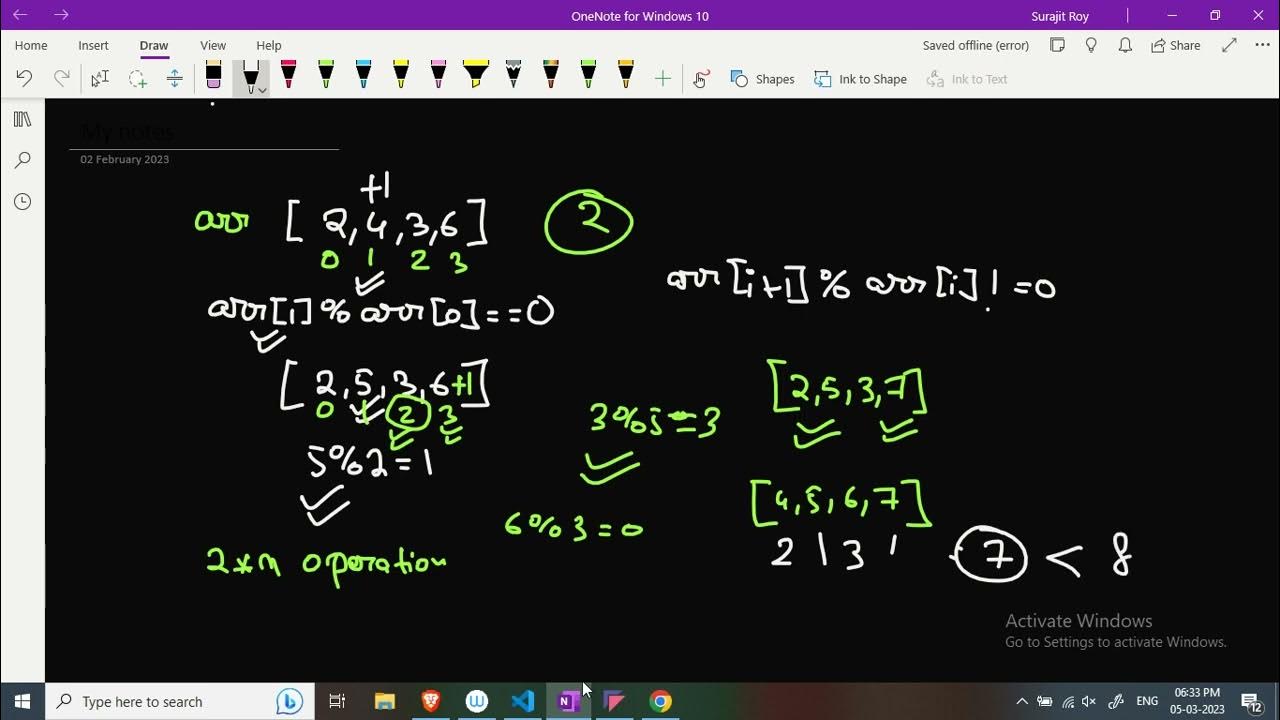 OneNote for Windows 10
Surajit Roy
Home Insert Draw View Help
Saved offline (error)
Share
Shapes
Ink to Shape
Ink to Text
My notes
02 February 2023
+1
arr [2,4,3,6] 2
0 1 2 3
arr[i+1] % arr[i] != 0
arr[1] % arr[0] == 0
[2,5,3,6+1]
0 1 2 3
[2,5,3,7]
3%5=3
5%2=1
[4,5,6,7]
6%3=0
2 1 3 1
7 < 8
2*n operation
Activate Windows
Go to Settings to activate Windows.
Type here to search
ENG
06:33 PM
05-03-2023
12